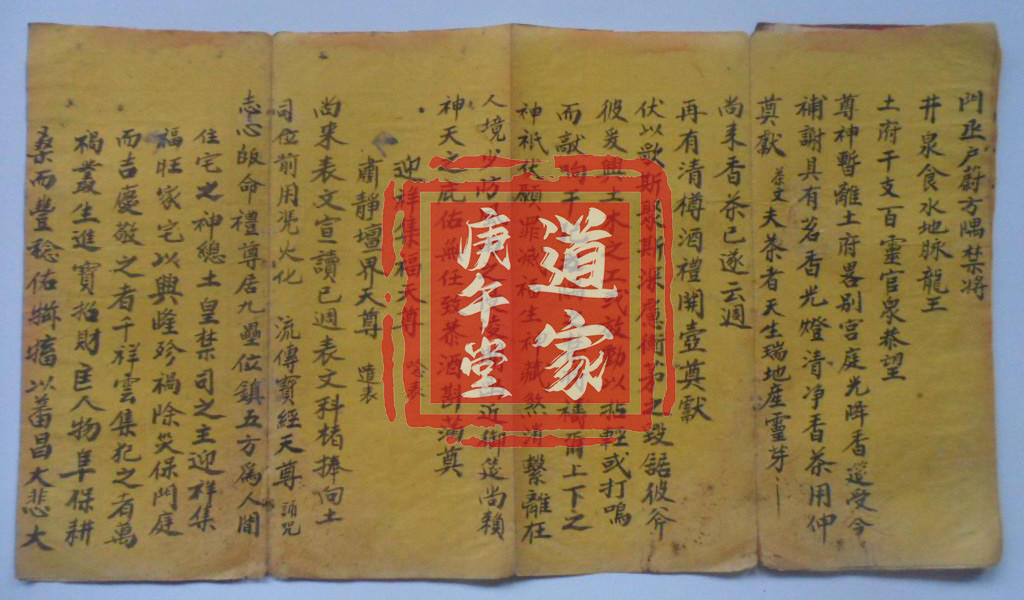 門丞户尉方隅禁将
井泉食水地脉龍王
土府干支百靈官衆恭望
尊神暫離土府畧别宫庭光降香筵受今
補謝具有茗香光燈清净香茶用仲
奠獻 夫茶者天生瑞地産靈芽
尚来香茶已遂云週
再有清樽酒禮開壺奠獻
伏以歌斯聚斯深慮衝茄之毁鋸彼斧
彼爰興土木之工或
而敲 上下之
神祇 願罪滅福生 藏煞消繫離在
人境少 近御筵尚賴
神天之庇佑無任致恭酒斟蒲奠
迎祥集福天尊 表
肅静壇界天尊
尚来表文宣讀已週表文科楮捧向土
司位前用凭火化 流傳寳經天尊 誦咒
志心皈命禮尊居九壘位鎮五方爲人間
住宅之神總土皇禁司之主迎祥集
福旺家宅以興隆殄禍除災保門庭
而吉慶敬之者千祥雲集犯之者萬
禍叢生進寳招財匡人物阜保耕
桑而豐稔佑 以蕃昌大悲大
道家
庚午堂